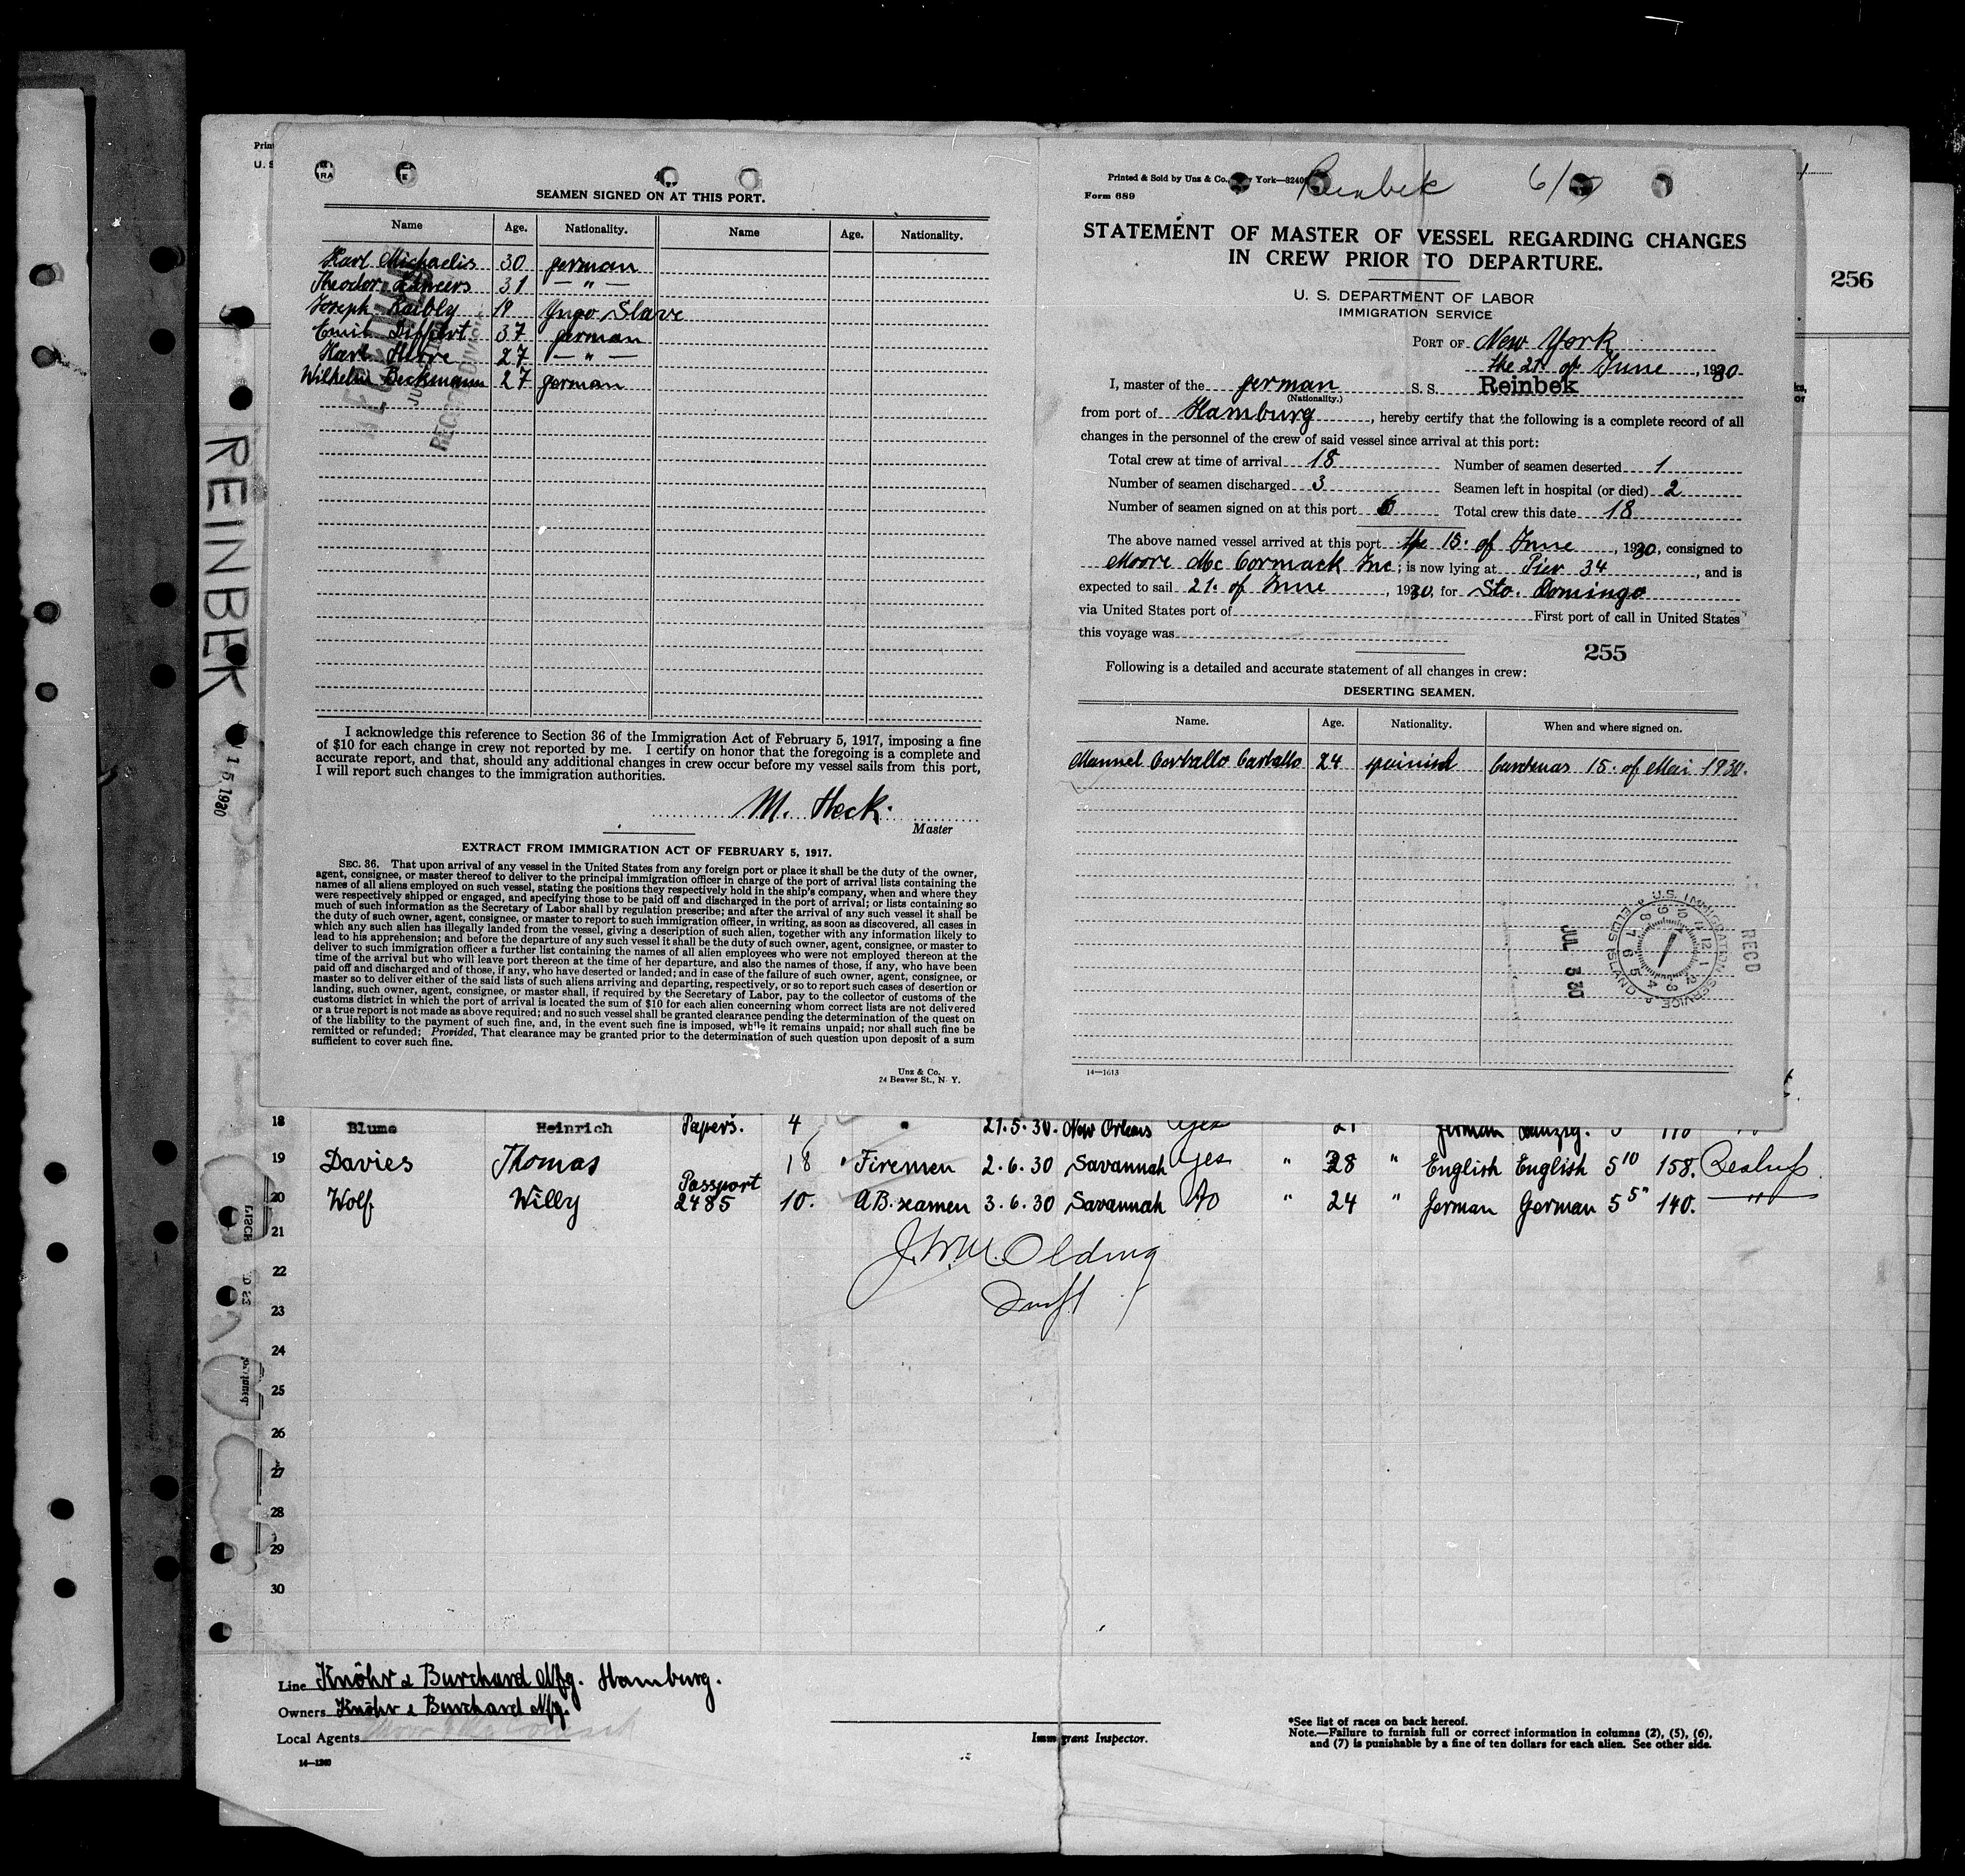 SEAMEN SIGNED ON AT THIS PORT.
Name Age. Nationality. Name Age. Nationality.
Karl Michaelis 30 german
Theodor 31 — " —
Joseph 19 Yugo Slave
Emil Diffört 37 german
Karl 27 — " —
Wilhelm Beckmann 27 german
I acknowledge this reference to Section 36 of the Immigration Act of February 5, 1917, imposing a fine
of $10 for each change in crew not reported by me. I certify on honor that the foregoing is a complete and
accurate report, and that, should any additional changes in crew occur before my vessel sails from this port,
I will report such changes to the immigration authorities.
M. Heck.
Master
EXTRACT FROM IMMIGRATION ACT OF FEBRUARY 5, 1917.
SEC. 36. That upon arrival of any vessel in the United States from any foreign port or place it shall be the duty of the owner,
agent, consignee, or master thereof to deliver to the principal immigration officer in charge of the port of arrival lists containing the
names of all aliens employed on such vessel, stating the positions they respectively hold in the ship's company, when and where they
were respectively shipped or engaged, and specifying those to be paid off and discharged in the port of arrival; or lists containing so
much of such information as the Secretary of Labor shall by regulation prescribe; and after the arrival of any such vessel it shall be
the duty of such owner, agent, consignee, or master to report to such immigration officer, in writing, as soon as discovered, all cases in
which any such alien has illegally landed from the vessel, giving a description of such alien, together with any information likely to
lead to his apprehension; and before the departure of any such vessel it shall be the duty of such owner, agent, consignee, or master to
deliver to such immigration officer a further list containing the names of all alien employees who were not employed thereon at the
time of the arrival but who will leave port thereon at the time of her departure, and also the names of those, if any, who have been
paid off and discharged and of those, if any, who have deserted or landed; and in case of the failure of such owner, agent, consignee, or
master so to deliver either of the said lists of such aliens arriving and departing, respectively, or so to report such cases of desertion or
landing, such owner, agent, consignee, or master shall, if required by the Secretary of Labor, pay to the collector of customs of the
customs district in which the port of arrival is located the sum of $10 for each alien concerning whom correct lists are not delivered
or a true report is not made as above required; and no such vessel shall be granted clearance pending the determination of the quest on
of the liability to the payment of such fine, and, in the event such fine is imposed, while it remains unpaid; nor shall such fine be
remitted or refunded; Provided, That clearance may be granted prior to the determination of such question upon deposit of a sum
sufficient to cover such fine.
Unz & Co.
24 Beaver St., N. Y.
Printed & Sold by Unz & Co., York—8240
Reinbek
Form 689
STATEMENT OF MASTER OF VESSEL REGARDING CHANGES
IN CREW PRIOR TO DEPARTURE.
U. S. DEPARTMENT OF LABOR
IMMIGRATION SERVICE
PORT OF New York
the 21. of June, 1930
I, master of the german S. S. Reinbek
(Nationality.)
from port of Hamburg, hereby certify that the following is a complete record of all
changes in the personnel of the crew of said vessel since arrival at this port:
Total crew at time of arrival 18 Number of seamen deserted 1
Number of seamen discharged 3 Seamen left in hospital (or died) 2
Number of seamen signed on at this port 6 Total crew this date 18
The above named vessel arrived at this port the 15. of June, 1930, consigned to
Moore Mc Cormack Inc; is now lying at Pier 34, and is
expected to sail 21. of June, 1930, for Sto. Domingo
via United States port of First port of call in United States
this voyage was
255
Following is a detailed and accurate statement of all changes in crew:
DESERTING SEAMEN.
Name. Age. Nationality. When and where signed on.
Manuel Carballo Carballo 24 Cardenas 15. of Mai 1930.
RECD
U.S. IMMIGRATION SERVICE
ELLIS ISLAND
JUL 3 30
14—1613
256
REINBEK
15 1930
18 Blume Heinrich Papers. 4 " 21.5.30. New Orleans yes 21 german Danzig.
19 Davies Thomas 18 Firemen 2.6.30 Savannah yes " 28 " English English 5 10 158.
20 Wolf Willy Passport 2485 10. A.B. seamen 3.6.30 Savannah " 24 " German German 5 5" 140. "
21
22
23
24
25
26
27
28
29
30
Line Knöhr & Burchard Nfg. Hamburg.
Owners Knöhr & Burchard Nfg.
Local Agents
Immigrant Inspector.
*See list of races on back hereof.
Note.—Failure to furnish full or correct information in columns (2), (5), (6),
and (7) is punishable by a fine of ten dollars for each alien. See other side.
14—1240